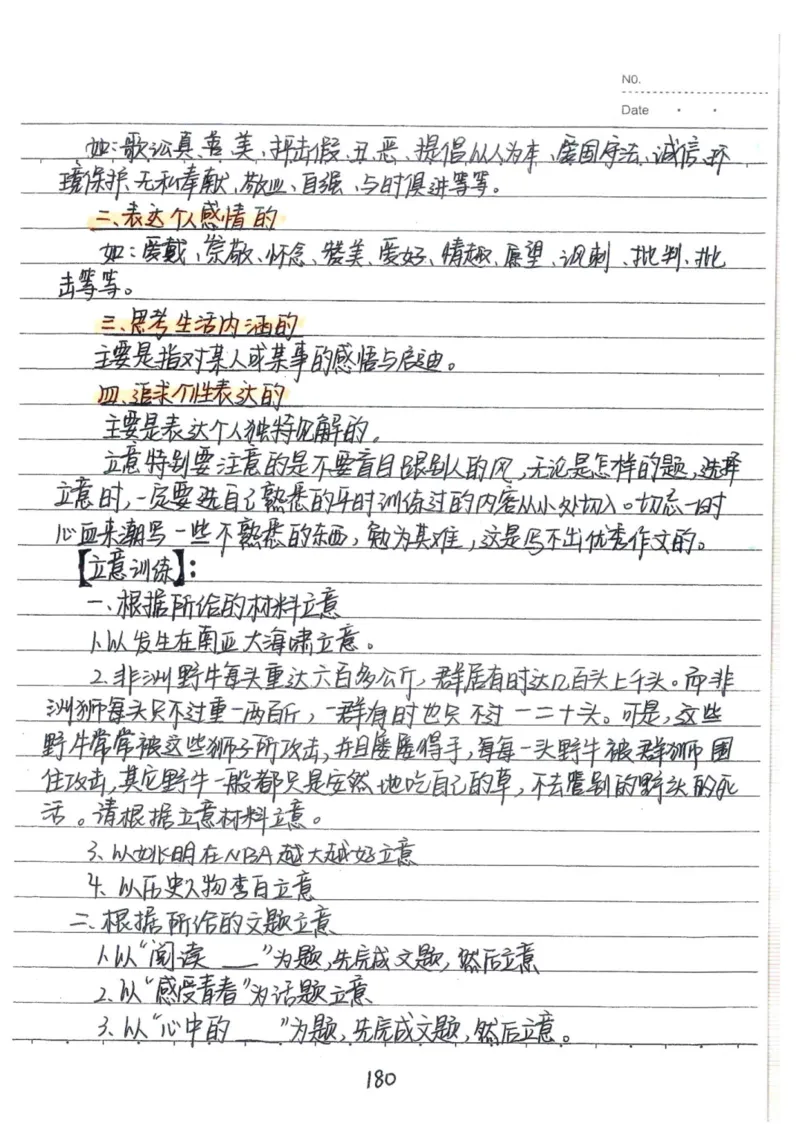 NO.
Date
如:歌讼真、善、美、抨击假、丑、恶、提倡以人为本、爱国守法、诚信、环
境保护、无私奉献、敬业、自强、与时俱进等等。
二、表达个人感情的
如:爱戴、崇敬、怀念、赞美、爱好、情趣、愿望、讽刺、批判、抨
击等等。
三、思考生活内涵的
主要是指对某人或某事的感悟与启迪。
四、追求个性表达的
主要是表达个人独特见解的。
立意特别要注意的是不要盲目跟别人的风,无论是怎样的题,选择
立意时,一定要选自己熟悉的平时训练过的内容从小处切入。切忌一时
心血来潮写一些不熟悉的东西,勉为其难,这是写不出优秀作文的。
【立意训练】:
一、根据所给的材料立意
1.以发生在南亚大海啸立意。
2.非洲野牛每头重达六百多公斤,群居有时达几百头上千头。而非
洲狮每头只不过重一两百斤,一群有时也只不过一二十头。可是,这些
野牛常常被这些狮子所攻击,并且屡屡得手,每每一头野牛被群狮围
住攻击,其它野牛一般都只是安然地吃自己的草,不去管别的野头的死
活。请根据立意材料立意。
3、以姚明在NBA越大越好立意
4、以历史人物李白立意
二、根据所给的文题立意
1.以“阅读___”为题,先完成文题,然后立意
2.以“感受青春”为话题立意
3.以“心中的___”为题,先完成文题,然后立意。
180